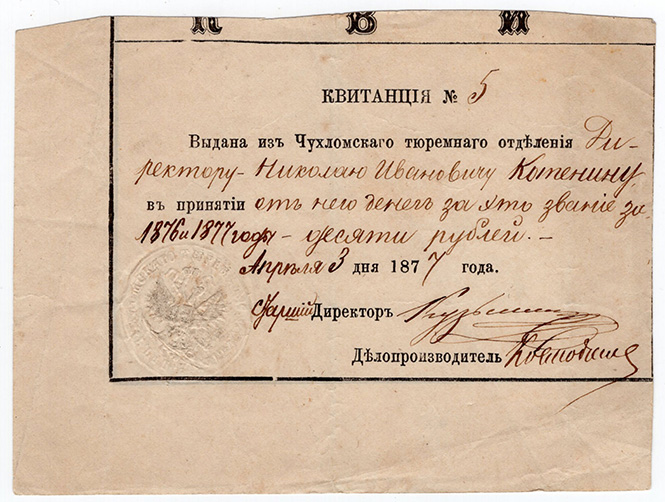 К В И
КВИТАНЦІЯ № 5
Выдана изъ Чухломскаго тюремнаго отдѣленія Ди-
ректору - Николаю Ивановичу Катенину
въ принятіи отъ него денегъ за это званіе за
1876 и 1877 годы - десяти рублей. -
Апрѣля 3 дня 1877 года.
Старшій Директоръ
Дѣлопроизводитель